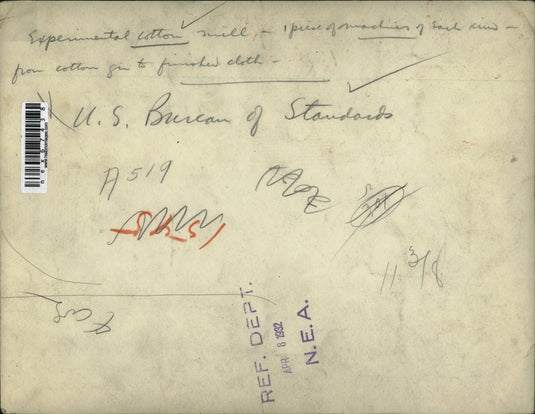 Experimental cotton mill, - 1 piece of machinery of each kind -
from cotton gin to finished cloth -
U. S. Bureau of Standards
A519
11 3/8
REF. DEPT.
APR 8 1932
N.E.A.